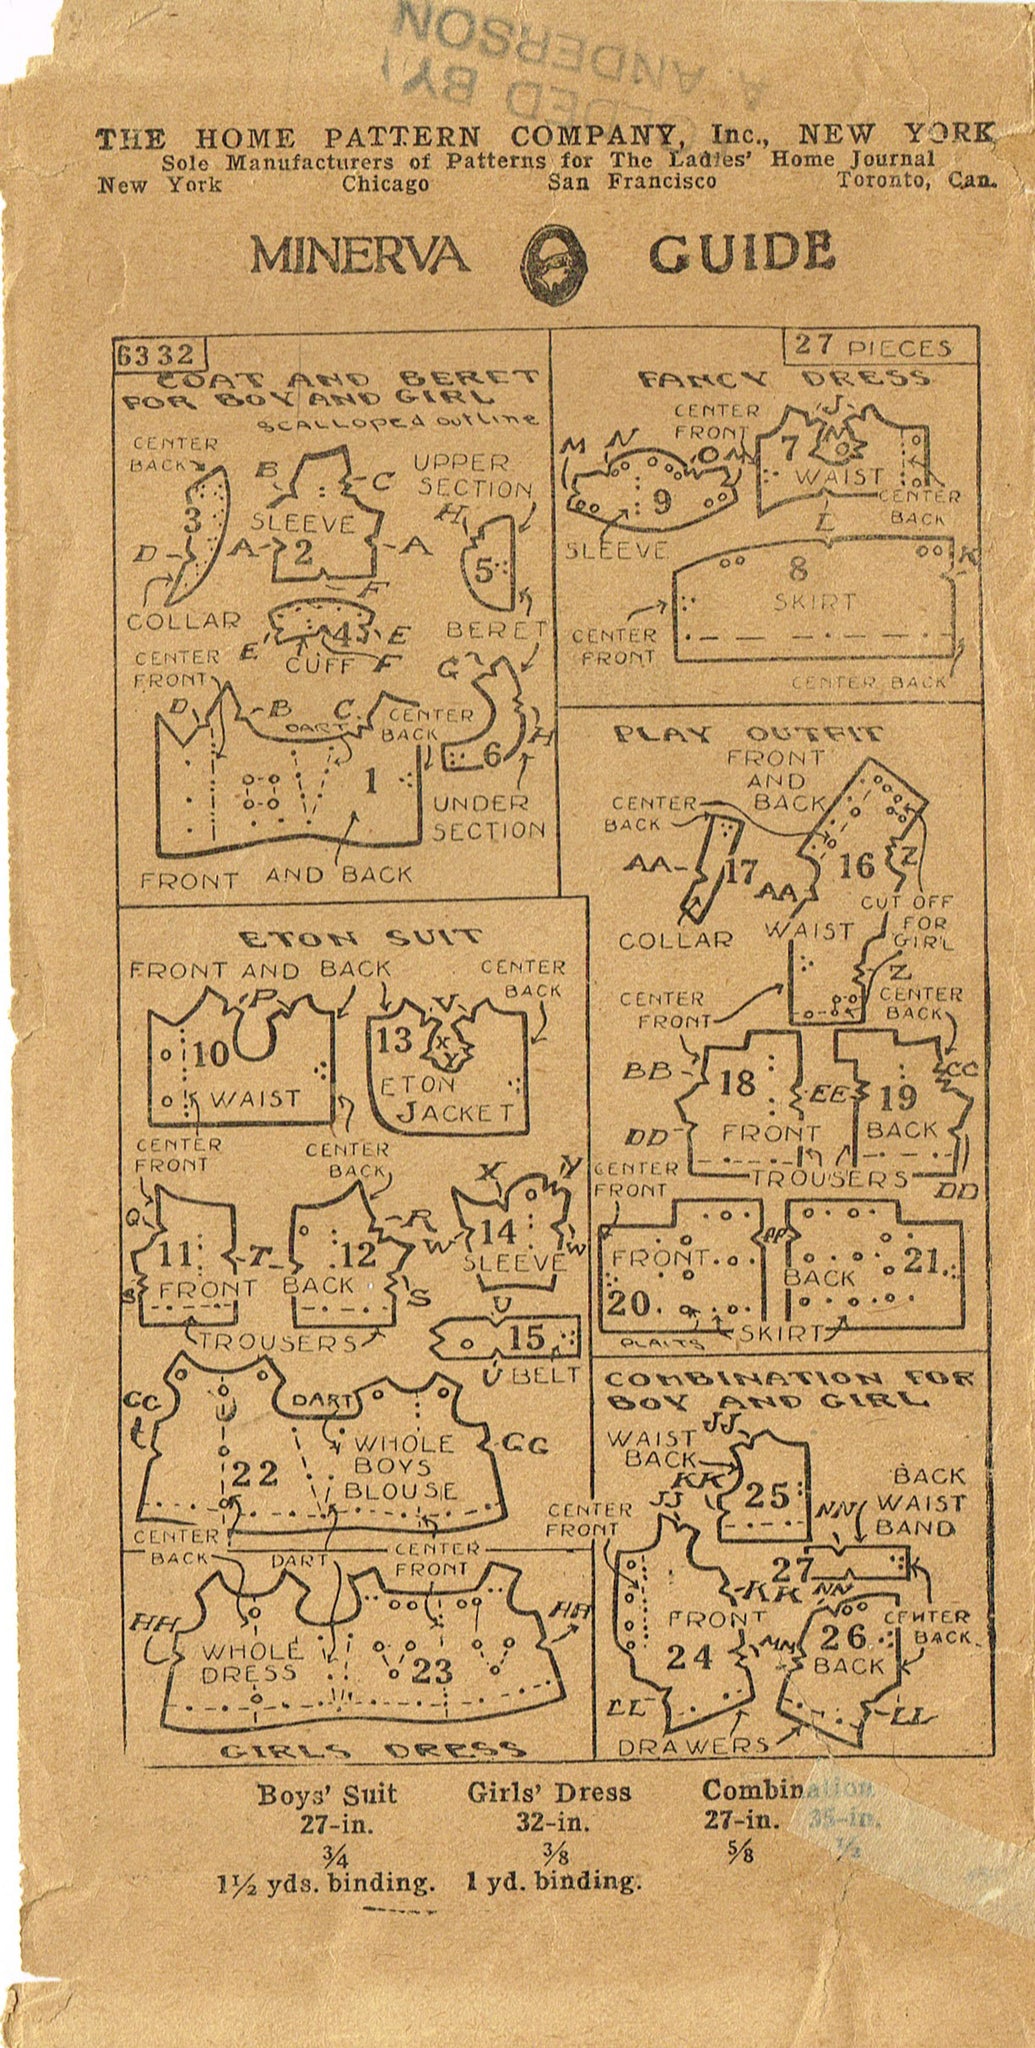 SEALED BY
A. ANDERSON
THE HOME PATTERN COMPANY, Inc., NEW YORK
Sole Manufacturers of Patterns for The Ladies' Home Journal
New York Chicago San Francisco Toronto, Can.
MINERVA GUIDE
6332
COAT AND BERET
FOR BOY AND GIRL
SCALLOPED OUTLINE
CENTER
BACK
3
D
COLLAR
B
C
SLEEVE
A
2
A
F
UPPER
SECTION
H
5
BERET
E
4
E
CUFF
F
CENTER
FRONT
D
B
C
DART
CENTER
BACK
1
FRONT AND BACK
G
6
H
UNDER
SECTION
27 PIECES
FANCY DRESS
M
N
O
M
9
SLEEVE
CENTER
FRONT
J
7
N
O
WAIST
L
CENTER
BACK
8
SKIRT
K
CENTER
FRONT
CENTER BACK
PLAY OUTFIT
FRONT
AND
BACK
CENTER
BACK
AA
17
COLLAR
AA
16
Z
WAIST
CUT OFF
FOR
GIRL
Z
CENTER
FRONT
CENTER
BACK
BB
18
EE
19
CC
DD
FRONT
BACK
TROUSERS
DD
CENTER
FRONT
FRONT
20
PLAITS
FF
BACK
21
SKIRT
ETON SUIT
FRONT AND BACK
CENTER
BACK
P
10
WAIST
V
13
X
Y
ETON
JACKET
CENTER
FRONT
CENTER
BACK
Q
11
T
S
FRONT
12
R
BACK
S
TROUSERS
X
Y
W
14
W
SLEEVE
U
15
U
BELT
GG
22
DART
WHOLE
BOYS
BLOUSE
GG
CENTER
BACK
DART
CENTER
FRONT
HH
WHOLE
DRESS
23
HH
GIRLS DRESS
COMBINATION FOR
BOY AND GIRL
JJ
WAIST
BACK
KK
25
BACK
WAIST
BAND
NN
CENTER
FRONT
JJ
27
KK
NN
FRONT
24
MM
26
BACK
CENTER
BACK
LL
LL
DRAWERS
Boys' Suit Girls' Dress Combination
27-in. 32-in. 27-in. 35-in.
3/4 3/8 5/8 1/2
1½ yds. binding. 1 yd. binding.